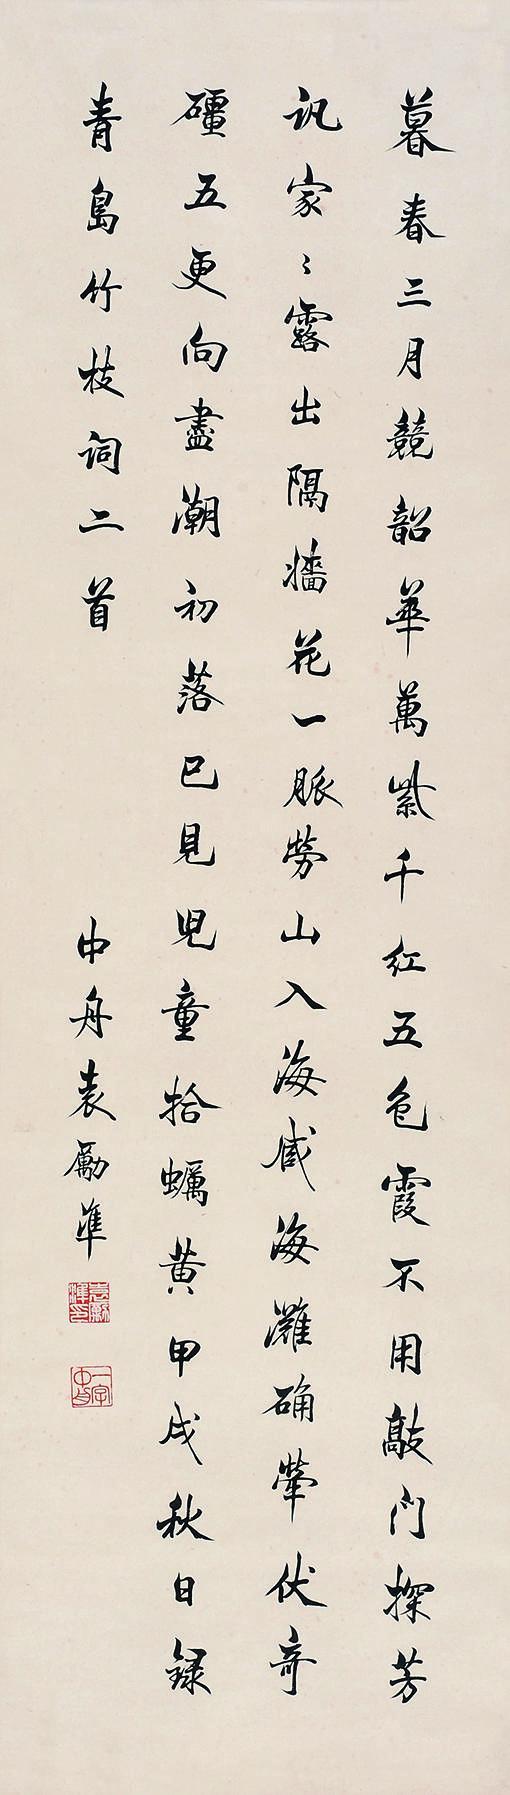 暮春三月競韶華萬紫千紅五色霞不用敲門探芳
訊家〻露出隔牆花一脈勞山入海咸海灘确犖伏奇
礓五更向盡潮初落已見兒童拾蠣黄甲戌秋日録
青島竹枝詞二首
中舟袁勵準
袁勵準印
一字中舟